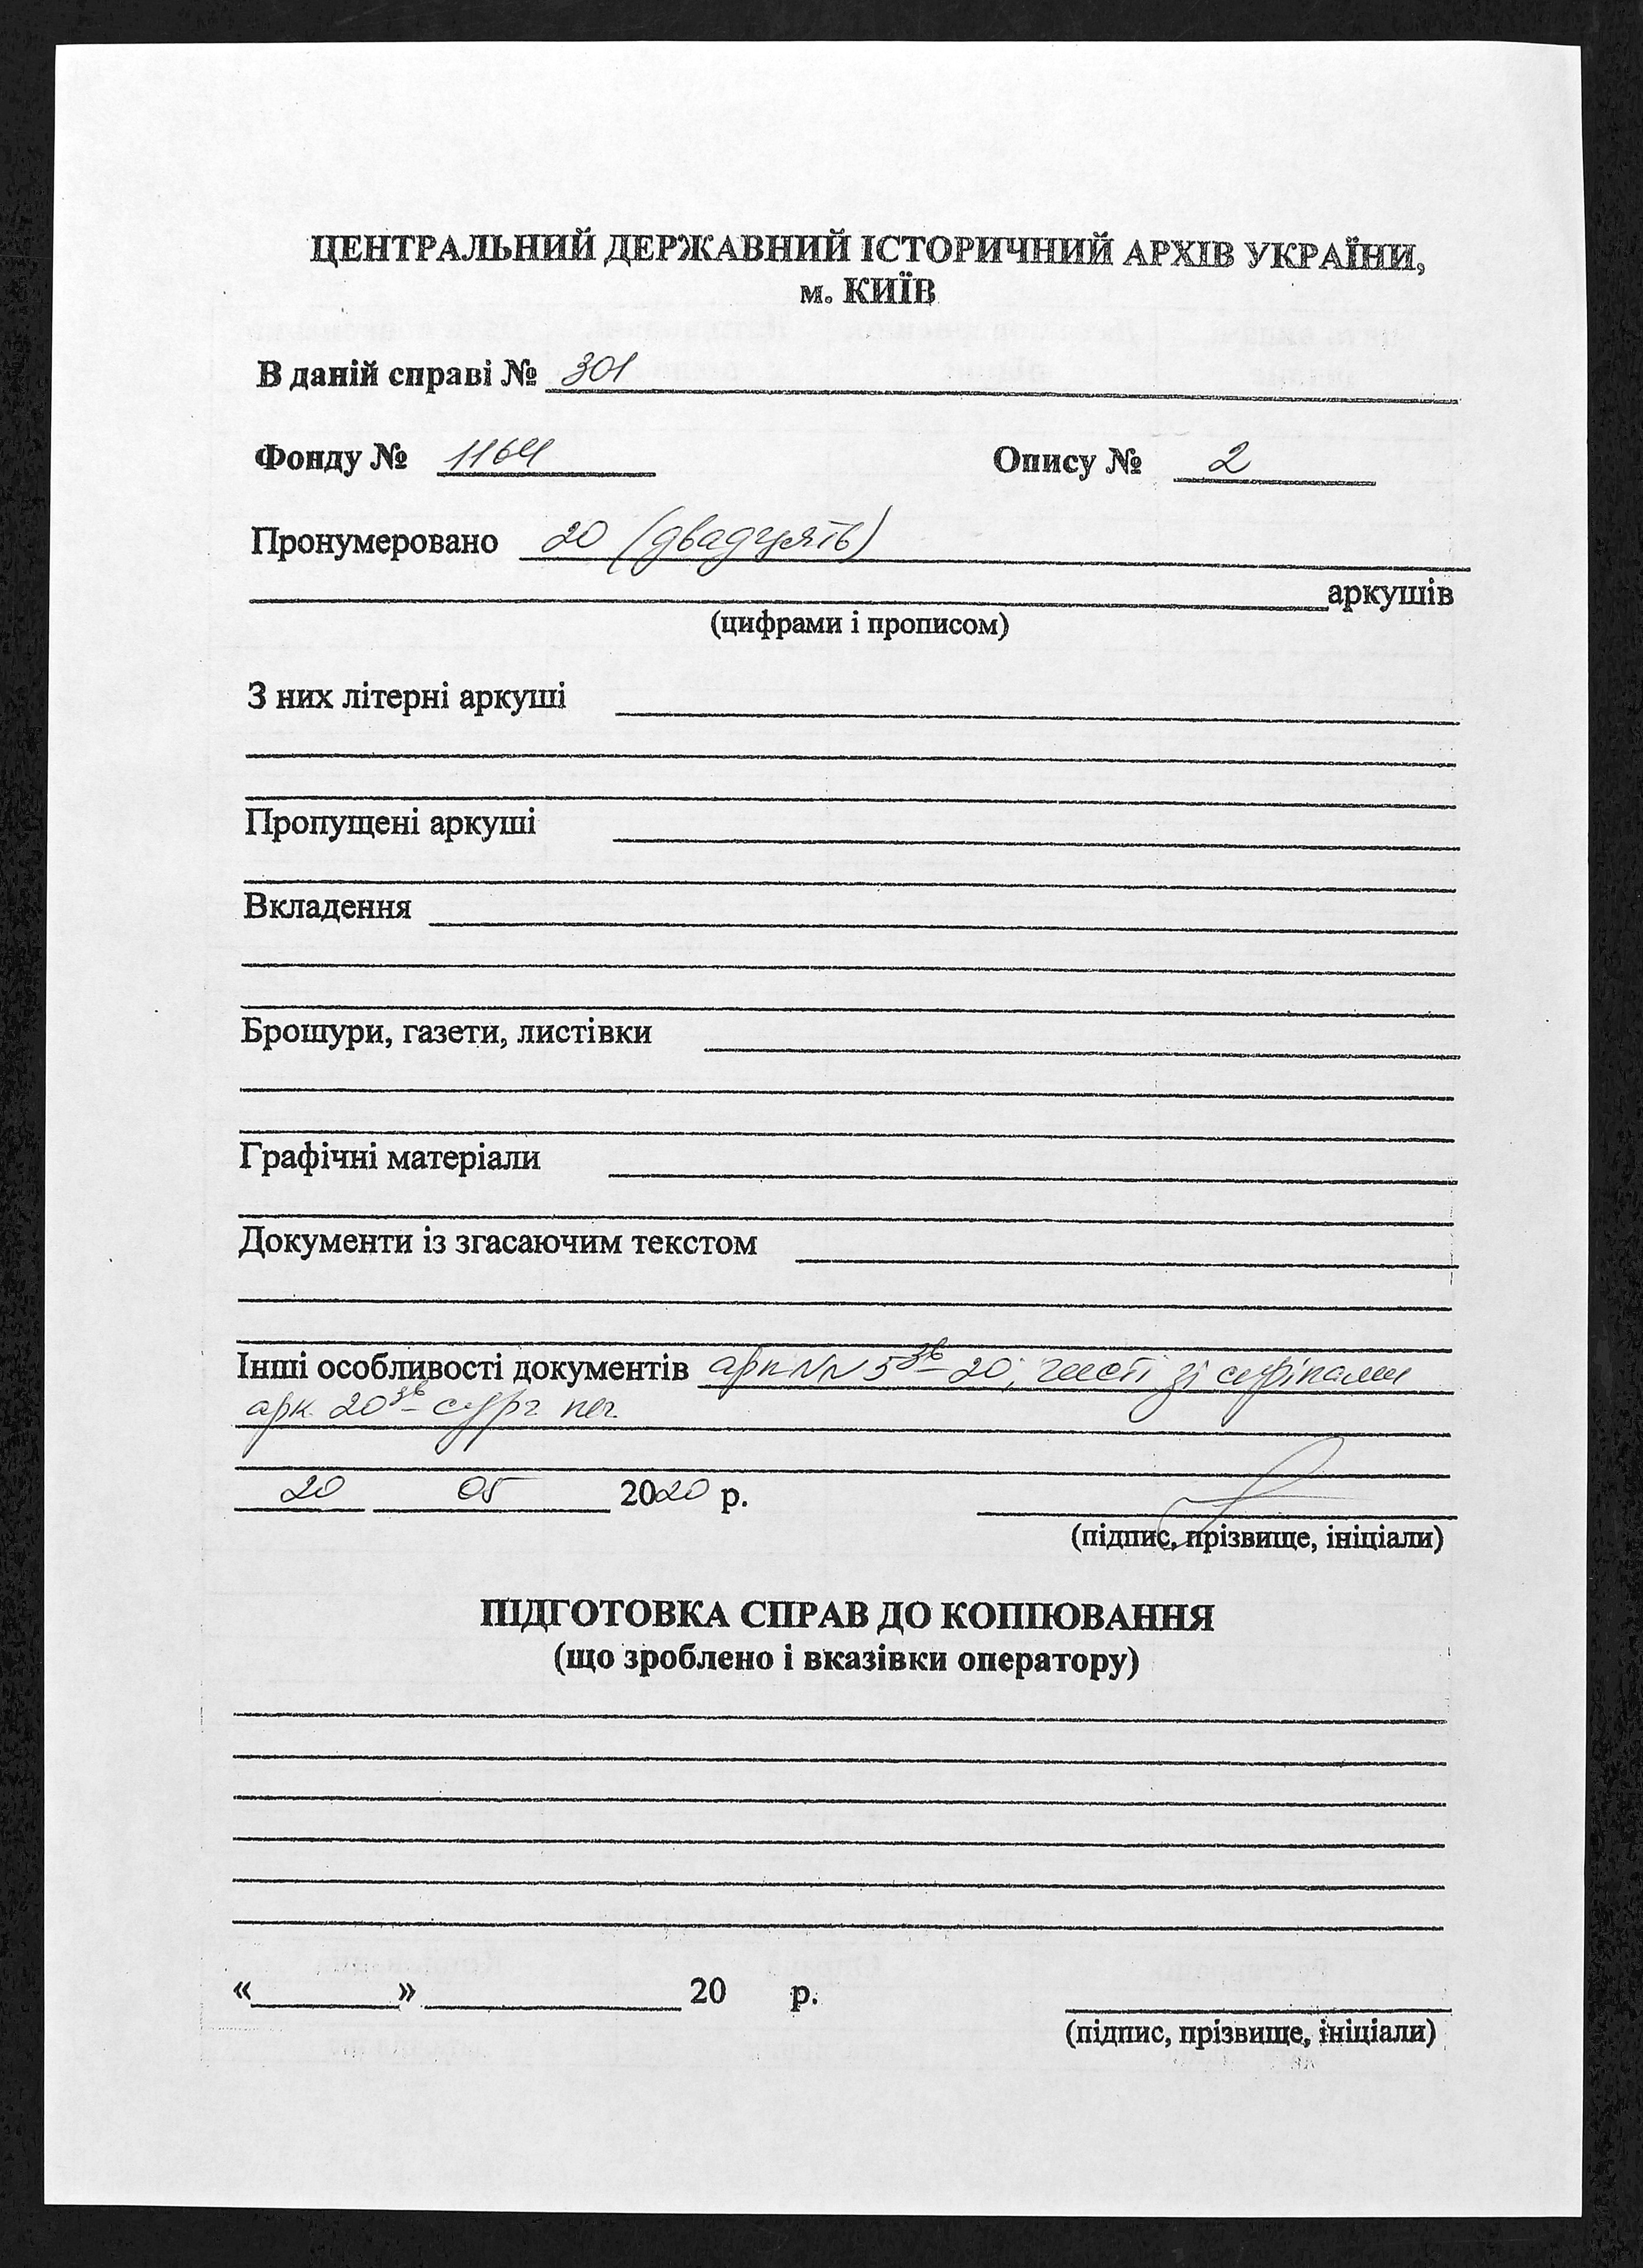 ЦЕНТРАЛЬНИЙ ДЕРЖАВНИЙ ІСТОРИЧНИЙ АРХІВ УКРАЇНИ,
м. КИЇВ
В даній справі № 301
Фонду № 1164 Опису № 2
Пронумеровано 20 (двадцять)
аркушів
(цифрами і прописом)
З них літерні аркуші
Пропущені аркуші
Вкладення
Брошури, газети, листівки
Графічні матеріали
Документи із згасаючим текстом
Інші особливості документів арк NN 5зв – 20; чисті
арк. 20зв – сург. печ.
20 05 2020 р.
(підпис, прізвище, ініціали)
ПІДГОТОВКА СПРАВ ДО КОПІЮВАННЯ
(що зроблено і вказівки оператору)
« » 20 р.
(підпис, прізвище, ініціали)